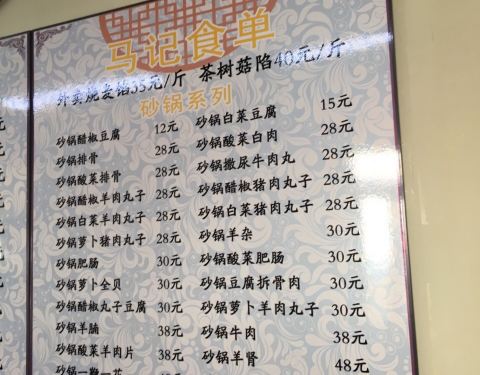 马记食单
外卖烧麦馅35元/斤 茶树菇陷40元/斤
砂锅系列
砂锅醋椒豆腐 12元
砂锅排骨 28元
砂锅酸菜排骨 28元
砂锅醋椒羊肉丸子 28元
砂锅白菜羊肉丸子 28元
砂锅萝卜猪肉丸子 28元
砂锅肥肠 30元
砂锅萝卜全贝 30元
砂锅醋椒丸子豆腐 30元
砂锅羊腩 38元
砂锅酸菜羊肉片 38元
砂锅一鞭一花
砂锅白菜豆腐 15元
砂锅酸菜白肉 28元
砂锅撒尿牛肉丸 28元
砂锅醋椒猪肉丸子 28元
砂锅白菜猪肉丸子 28元
砂锅羊杂 30元
砂锅酸菜肥肠 30元
砂锅豆腐拆骨肉 30元
砂锅萝卜羊肉丸子 30元
砂锅牛肉 38元
砂锅羊肾 48元